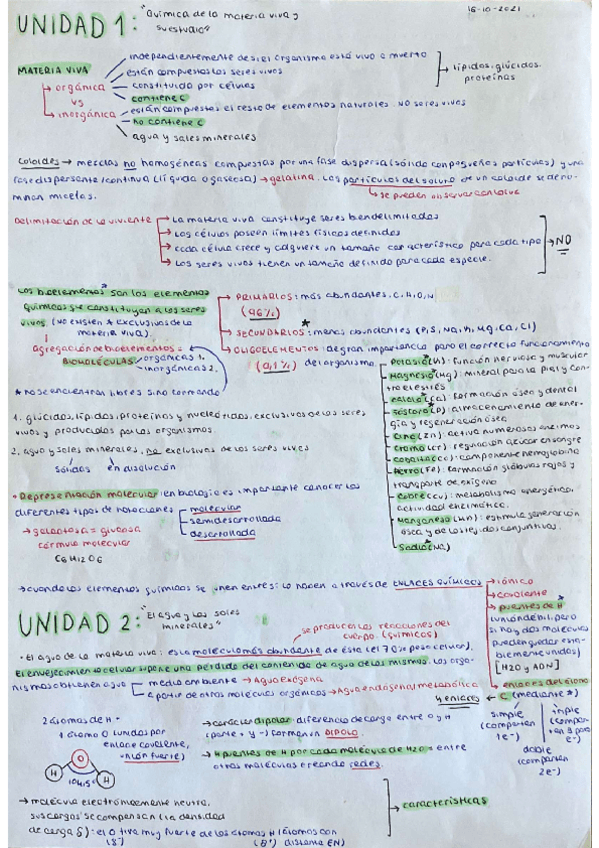 UNIDAD 1: "Química de la materia viva y su estudio" 16-10-2021
independientemente de si el organismo está vivo o muerto
MATERIA VIVA
están compuestos los seres vivos
lípidos, glúcidos, proteínas
orgánica
constituido por células
vs
contiene C
inorgánica
están compuestas el resto de elementos naturales. NO seres vivos
no contiene C
agua y sales minerales
Coloides → mezclas no homogéneas compuestas por una fase dispersa (sólido con pequeñas partículas) y una
fase dispersante/continua (líquida o gaseosa) → gelatina. Las partículas del soluto de un coloide se deno-
minan micelas.
se pueden observar con la luz
Delimitación de lo viviente
La materia viva constituye seres bien delimitados
Las células poseen límites físicos definidos
cada célula crece y adquiere un tamaño característico para cada tipo
→ NO
Los seres vivos tienen un tamaño definido para cada especie.
Los bioelementos* son los elementos
químicos que constituyen a los seres
vivos (NO existen * exclusivos de la
materia viva).
PRIMARIOS: más abundantes. C, H, O, N
(96%)
SECUNDARIOS*: menos abundantes (P, S, Na, K, Mg, Ca, Cl)
OLIGOELEMENTOS: de gran importancia para el correcto funcionamiento
(0,1%) del organismo
agregación de bioelementos =
BIOMOLÉCULAS
orgánicas 1.
inorgánicas 2.
* no se encuentran libres sino formando
Potasio* (K): función nerviosa y muscular
Magnesio* (Mg): mineral para la piel y con-
tra estrés
Calcio* (Ca): formación ósea y dental
Fósforo* (P): almacenamiento de ener-
gía y regeneración ósea
Cinc (Zn): activa numerosas enzimas
Cromo (Cr): regulación azúcar en sangre
Cobalto (Co): componente hemoglobina
Hierro (Fe): formación glóbulos rojos y
transporte de oxígeno
Cobre (Cu): metabolismo energético,
actividad enzimática.
Manganeso (Mn): estimula generación
ósea y de los tejidos conjuntivos.
Sodio* (Na)
1. glúcidos, lípidos, proteínas y nucleótidos. exclusivos de los seres
vivos y producidos por los organismos.
2. agua y sales minerales, no exclusivas de los seres vivos
sólidas en disolución
• Representación molecular: en biología es importante conocer los
diferentes tipos de notaciones
molecular
semidesarrollada
desarrollada
→ galactosa = glucosa
fórmula molecular
C6H12O6
→ cuando los elementos químicos se unen entre sí lo hacen a través de ENLACES QUÍMICOS
iónico
covalente
puentes de H
(unión débil, pero
si hay dos moléculas
pueden quedar esta-
blemente unidas)
[H2O y ADN]
UNIDAD 2: "El agua y las sales minerales"
se producen las reacciones del
cuerpo. (químicas)
• El agua de la materia viva: es la molécula más abundante de ésta (el 70% peso celular).
El envejecimiento celular supone una pérdida del contenido de agua de los mismos. Los orga-
nismos obtienen agua
medio ambiente → Agua exógena
a partir de otras moléculas orgánicas → Agua endógena/metabólica
4 enlaces ← C (mediante *)
simple
(comparten
1e-)
doble
(comparten
2e-)
triple
(compar-
ten 3 pares
e-)
2 átomos de H +
1 átomo O (unidos por
enlace covalente,
unión fuerte)
O
H 104,5° H
→ carácter dipolar: diferencia de carga entre O y H
(parte + y -) forman un DIPOLO.
→ 4 puentes de H por cada molécula de H2O = entre
otras moléculas creando redes.
→ molécula electrónicamente neutra,
sus cargas se compensan (la densidad
de carga δ): el O tira muy fuerte de los átomos H (átomos con
→ características
(δ-) (δ+) distinta EN)